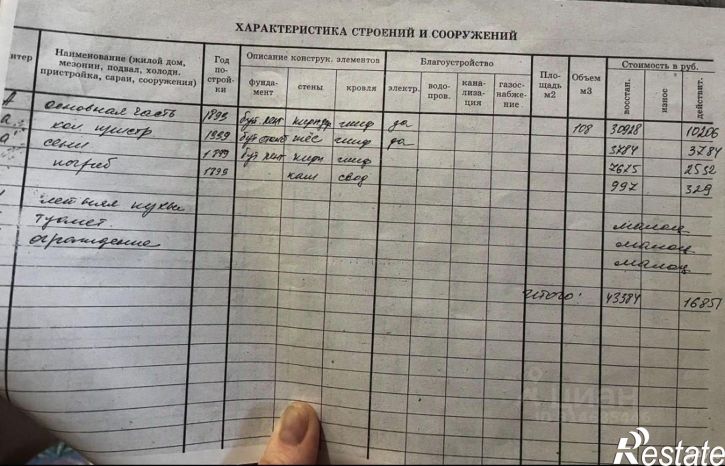 ХАРАКТЕРИСТИКА СТРОЕНИЙ И СООРУЖЕНИЙ
нтер
Наименование (жилой дом, мезонин, подвал, холодн. пристройка, сараи, сооружения)
Год по-строй-ки
Описание конструк. элементов
фунда-мент
стены
кровля
Благоустройство
электр.
водо-пров.
кана-лиза-ция
газос-набже-ние
Пло-щадь м2
Объем м3
Стоимость в руб.
восстан.
износ
действит.
А основная часть 1895 бут лент кирп шиф да 108 30928 10206
а хол. пристр 1999 бут шиф да 3784 3784
а сени бут лент кирп шиф 7675 2532
погреб 1895 кам свод 997 329
летняя кухня малоц
туалет. малоц
ограждение малоц
итого: 43384 16851
циан
Restate